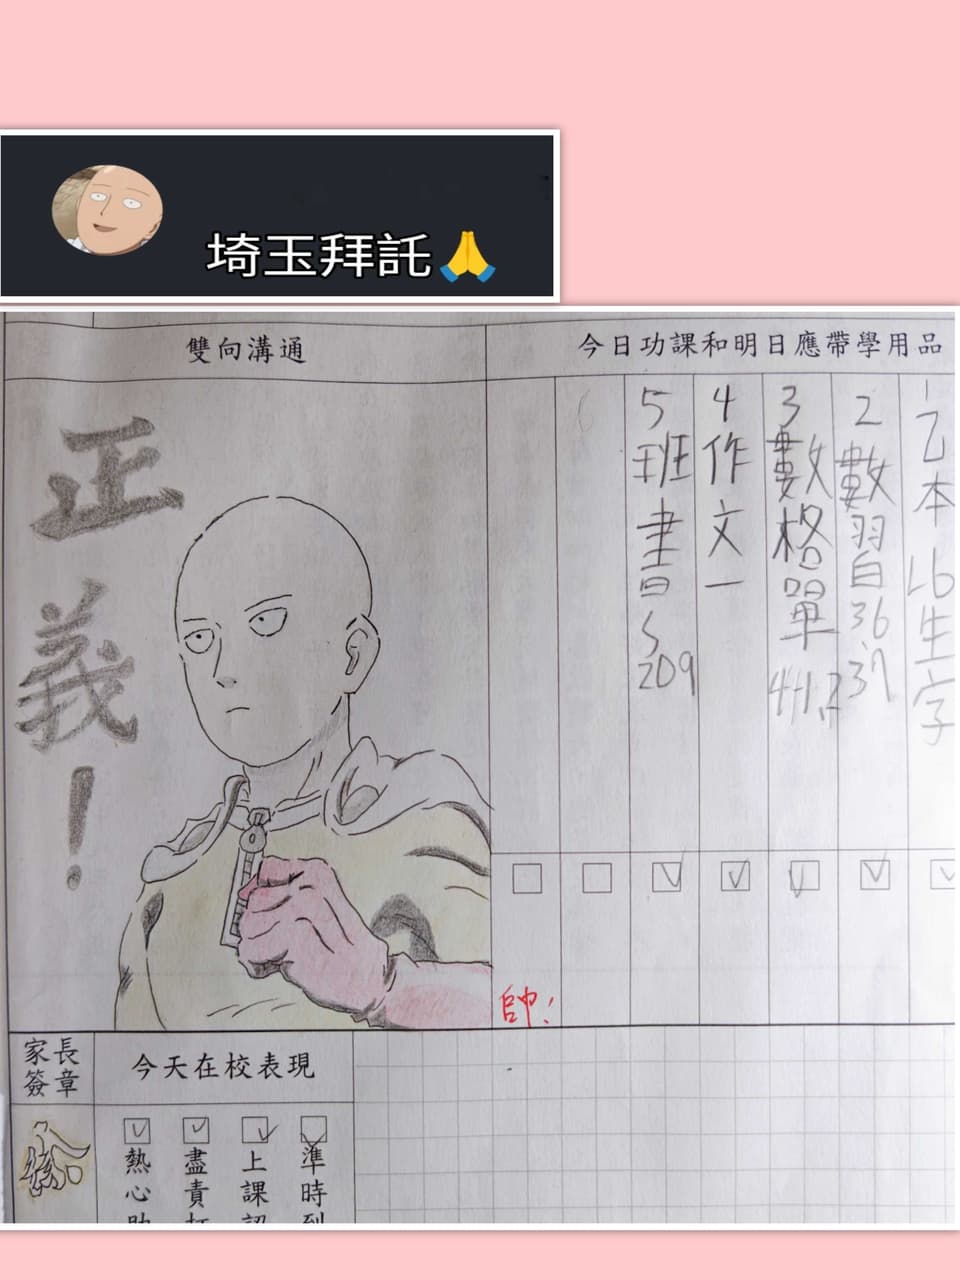 埼玉拜託🙏
雙向溝通
今日功課和明日應帶學用品
正義!
乙本L6生字
2數習36、37
3數格單
4作文一
5班書s209
帥!
家長簽章
今天在校表現
熱心
盡責
上課
準時到